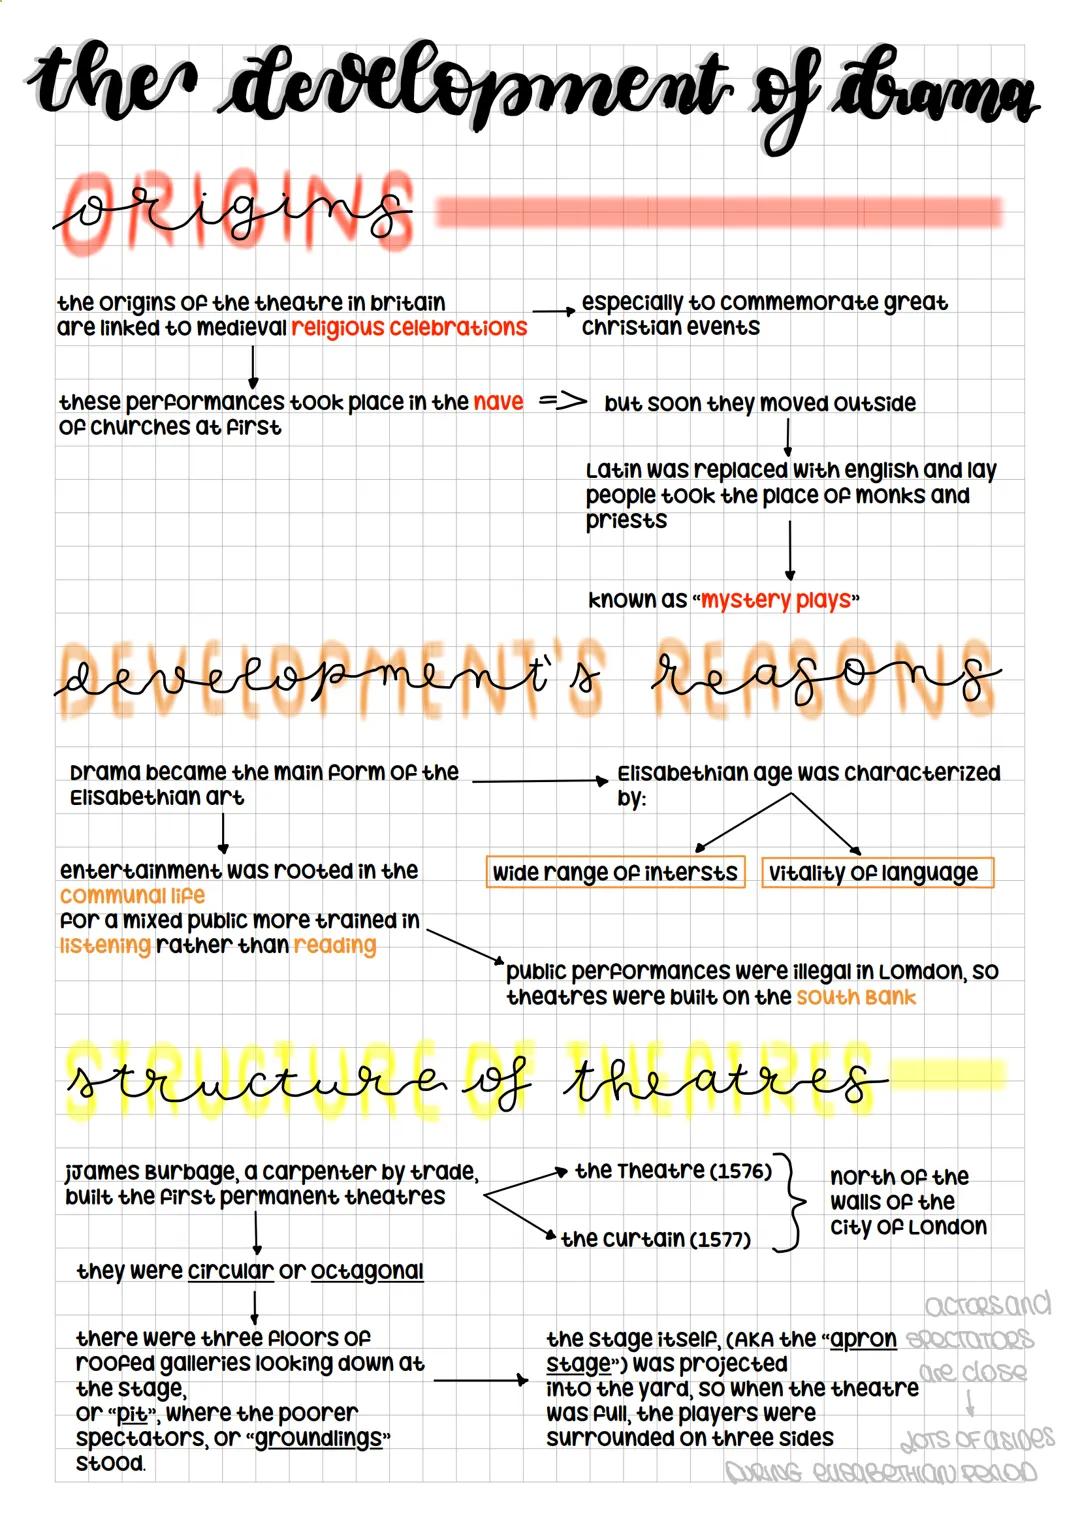 the development of drama
ORIGINS
origins
the origins of the theatre in britain
are linked to medieval religious celebrations
especially to commemorate great
christian events
these performances took place in the nave
of churches at first
=> but soon they moved outside
Latin was replaced with english and lay
people took the place of monks and
priests
known as “mystery plays”
DEVELOPMENT'S REASONS
development's reasons
Drama became the main form of the
Elisabethian art
Elisabethian age was characterized
by:
entertainment was rooted in the
communal life
for a mixed public more trained in
listening rather than reading
wide range of intersts
vitality of language
public performances were illegal in Lomdon, so
theatres were built on the south Bank
STRUCTURE OF THEATRES
structure of theatres
jJames Burbage, a carpenter by trade,
built the first permanent theatres
the Theatre (1576)
the curtain (1577)
north of the
walls of the
city of London
they were circular or octagonal
there were three floors of
roofed galleries looking down at
the stage,
or “pit”, where the poorer
spectators, or “groundlings”
stood.
the stage itself, (AKA the “apron
stage”) was projected
into the yard, so when the theatre
was full, the players were
surrounded on three sides
actors and
spectators
are close
lots of asides
during elisabethian